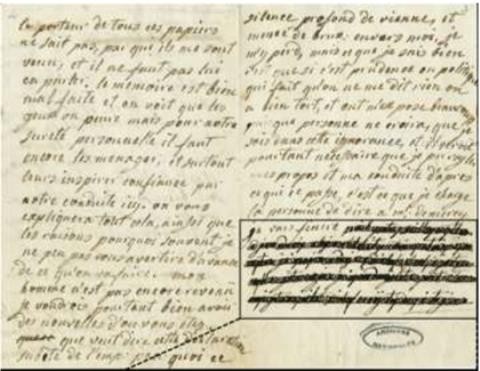 le porteur de tous ces papiers
ne sait pas, par qui ils me sont
venu, et il ne faut pas lui
en parler. le mémoire est bien
mal faite et on voit que les
gens ont peur mais pour notre
sureté personnelle il faut
encore les menager, et surtout
leurs inspirer confiance par
notre conduite ici. on vous
expliquera tout cela, ainsi que
les raisons pourquoi souvent je
ne peu pas vous avertire d'avance
de ce qu'on va faire. mon
homme n'est pas encore revenu
je voudrois pourtant bien avoir
des nouvelles d'ou vous etes
que veut dire cette declaration
subite de l'emp: pourquoi ce
silence profond de vienne, et
meme de brux: envers moi. je
m'y perd, mais ce que je sais bien
c'est que si c'est prudence ou politique
qui fait qu'on ne me dit rien on
a bien tort, et on m'expose beaucoup
puisque personne ne croira, que je
sois dans cette ignorance, et il seroit
pourtant nécéssaire que je puisse regler
mes propos et ma conduite d'apres
ce qui se passe, c'est ce que je charge
la personne de dire a mr
je vais fenire
ARCHIVES